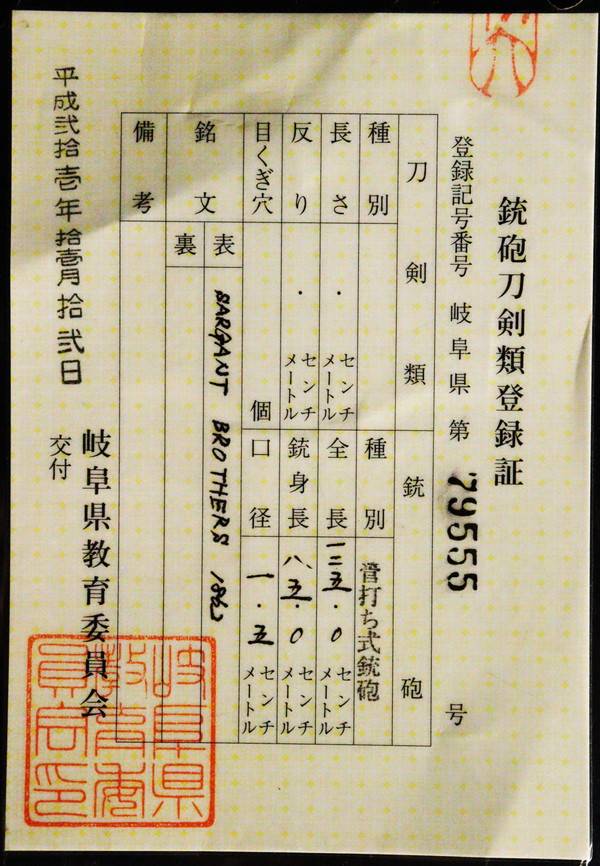 銃砲刀剣類登録証
登録記号番号 岐阜県 第 79555 号
刀剣類 銃砲
種別 種別 管打ち式銃砲
長さ ・ センチメートル 全長 一二五・0 センチメートル
反り ・ センチメートル 銃身長 八五・0 センチメートル
目くぎ穴 個 口径 一・五 センチメートル
銘文 表 BROTHERS
裏
備考
平成弐拾壱年拾壱月拾弐日
岐阜県教育委員会
交付
岐阜県教育委員会印